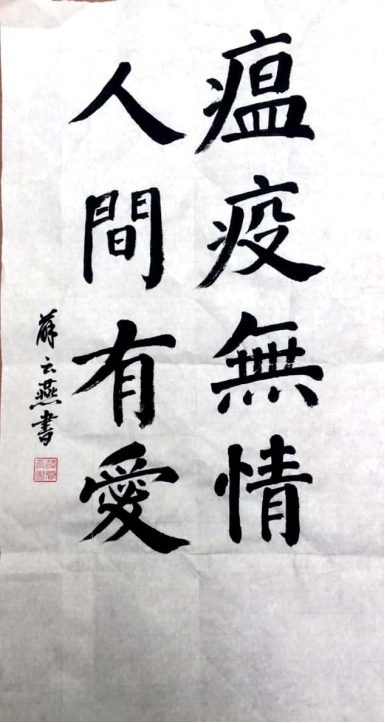 瘟疫無情
人間有愛
薛云燕書